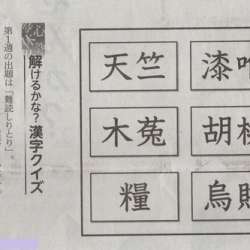 解けるかな？漢字クイズ
第１週の出題は「難読しりとり」。
天竺
木菟
胡
糧
烏
漆